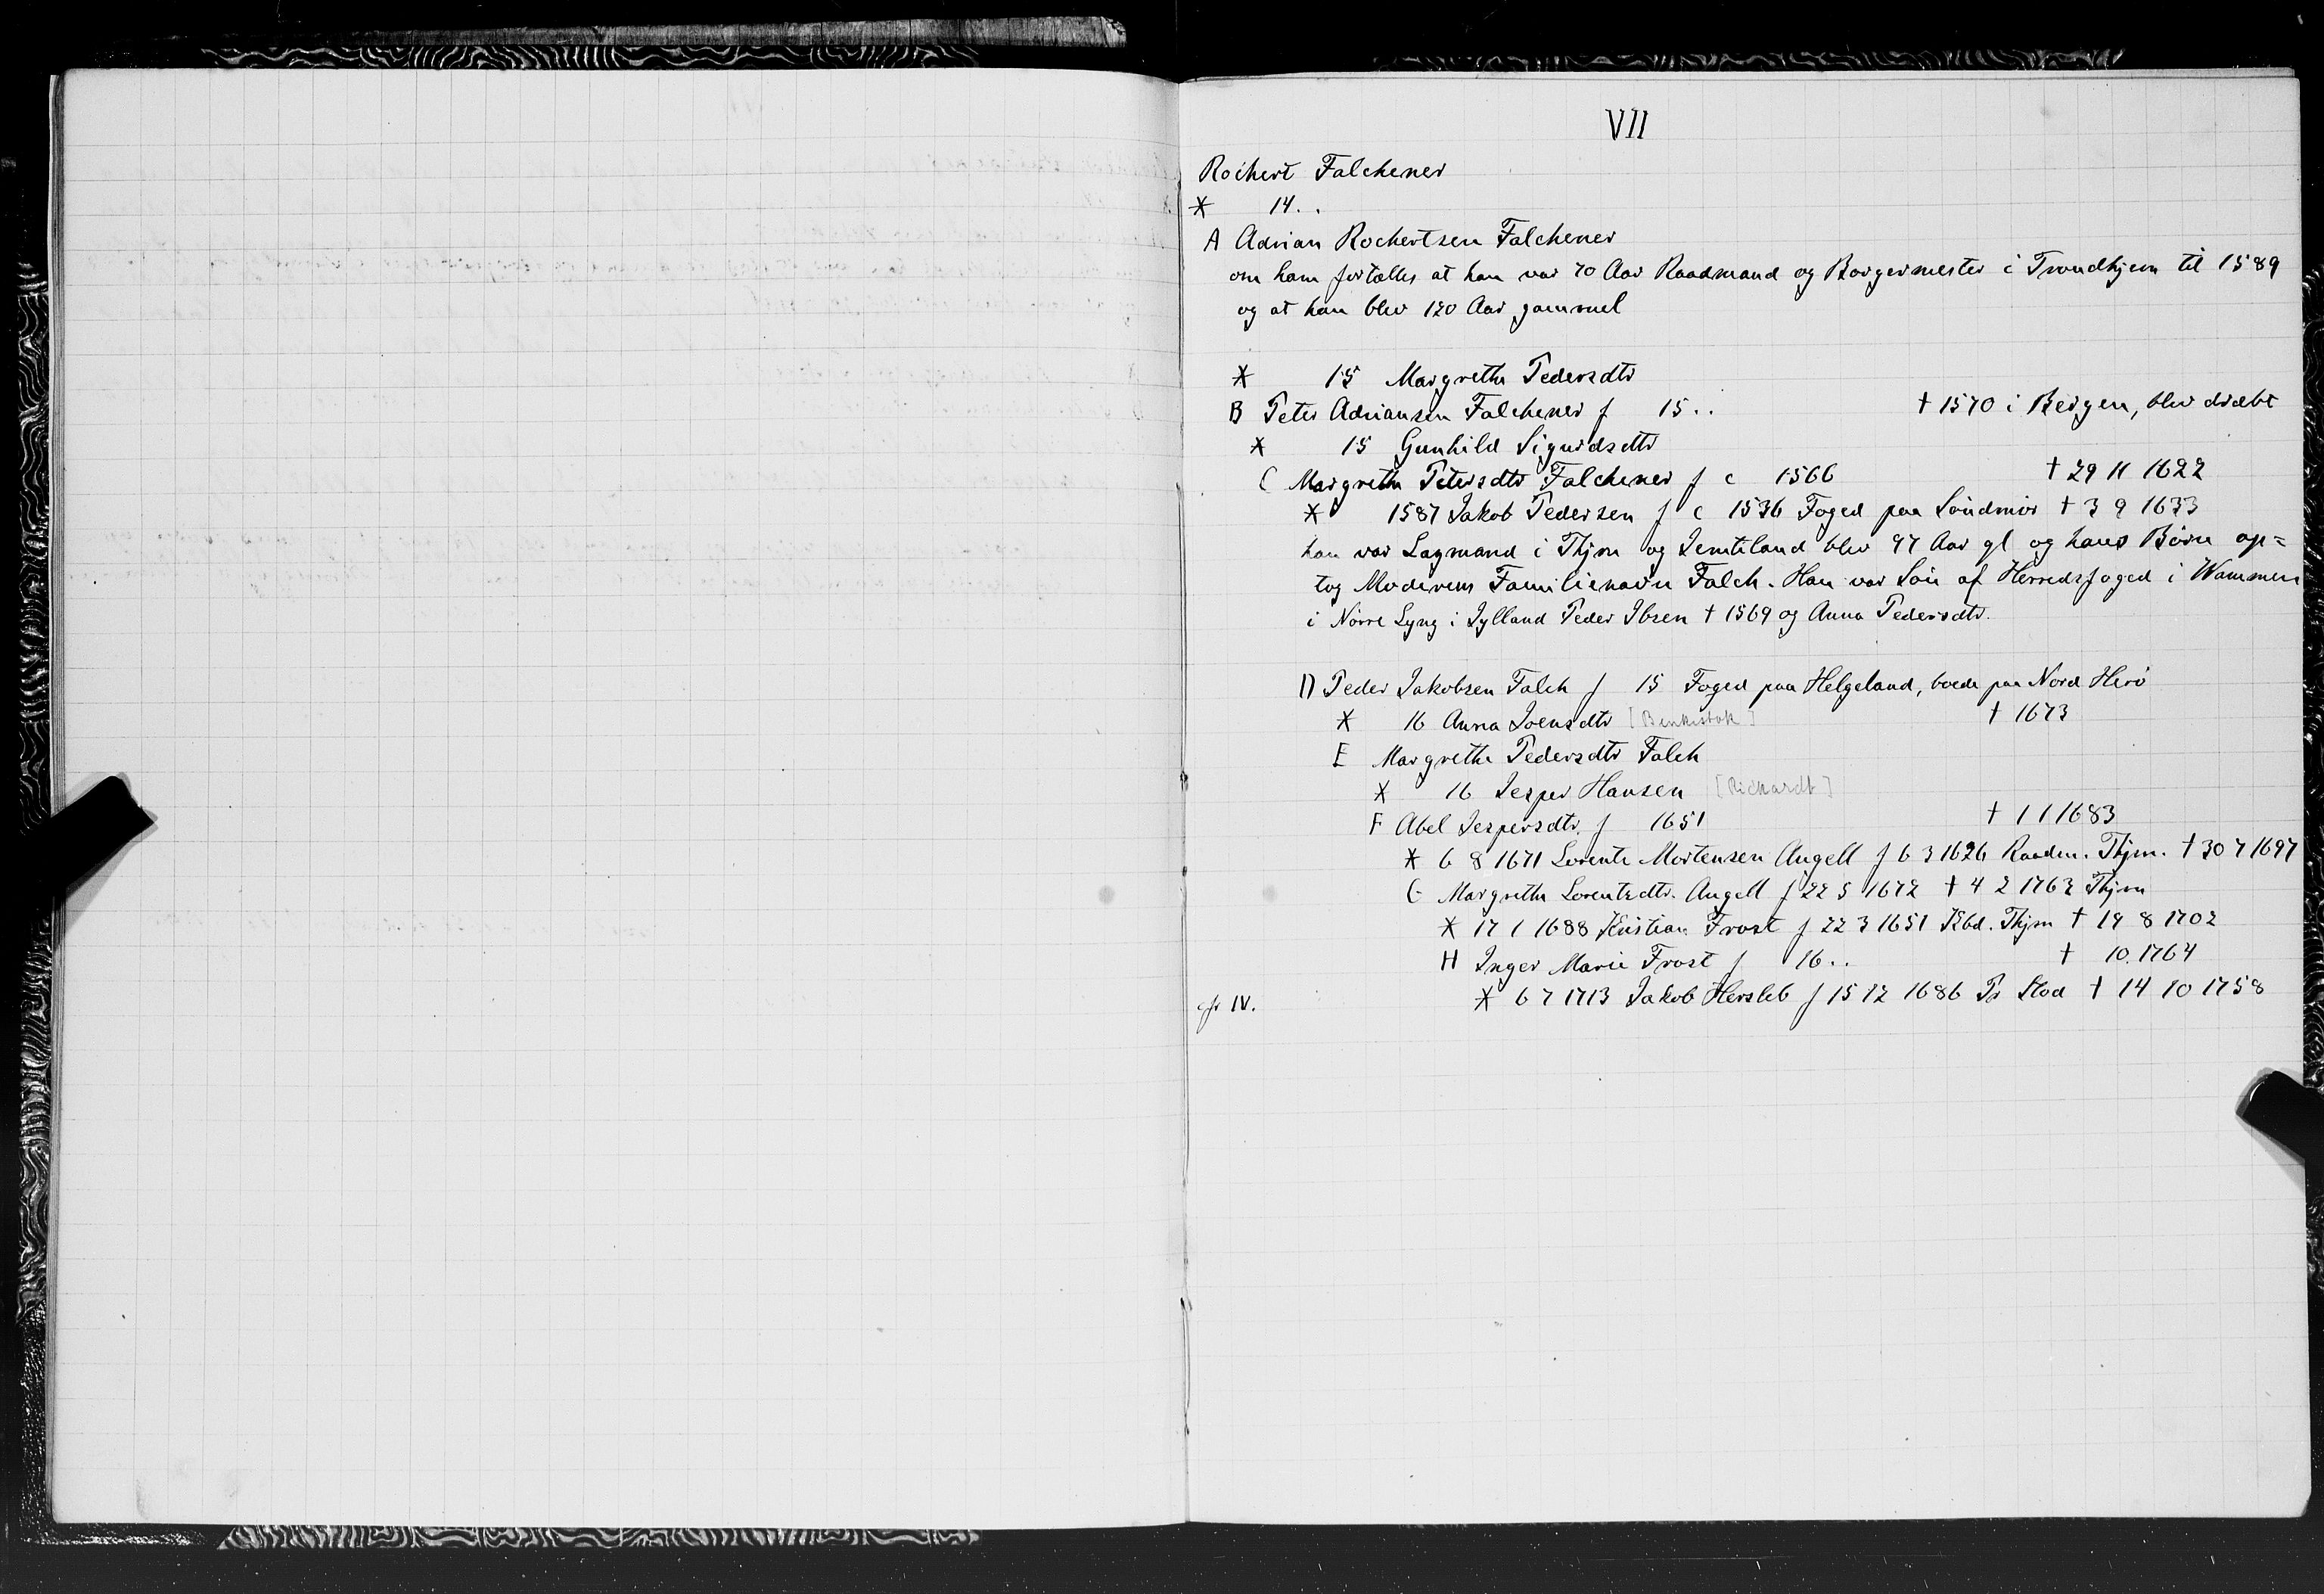 VII
Rochert Falchener
⚹ 14..
A Adrian Rochertsen Falchener
om ham fortælles at han var 70 Aar Raadmand og Borgermester i Trondhjem til 1589
og at han blev 120 Aar gammel
⚹ 15 Margrethe Pedersdtr
B Peter Adriansen Falchener f 15.. † 1570 i Bergen, blev dræbt
⚹ 15 Gunhild Sigurdsdtr
C Margrethe Petersdtr Falchener f c 1566 † 29 11 1622
⚹ 1587 Jakob Pedersen f c 1536 Foged paa Søndmør † 3 9 1633
han var Lagmand i Thjm og Jemteland blev 97 Aar gl og hans Børn op=
tog Moderens Familienavn Falch. Han var Søn af Herredsfoged i Wammen
i Nørre Lyng i Jylland Peder Ibsen † 1569 og Anna Pedersdtr.
D Peder Jakobsen Falch f 15 Foged paa Helgeland, boede paa Nord Herø
⚹ 16 Anna Joensdtr [Benkestok] † 1673
E Margrethe Pedersdtr Falch
⚹ 16 Jesper Hansen [Richardt]
F Abel Jespersdtr. f 1651 † 1 1 1683
⚹ 6 8 1671 Lorents Mortensen Angell f 6 3 1626 Raadm. Thjm. † 30 7 1697
G Margrethe Lorentzdtr. Angell f 22 5 1672 † 4 2 1763 Thjm
⚹ 17 1 1688 Kristian Frost f 22 3 1651 Kbd. Thjm † 19 8 1702
H Inger Marie Frost f 16.. † 10. 1764
cfr IV. ⚹ 6 7 1713 Jakob Hersleb f 15 12 1686 Pr Stod † 14 10 1758